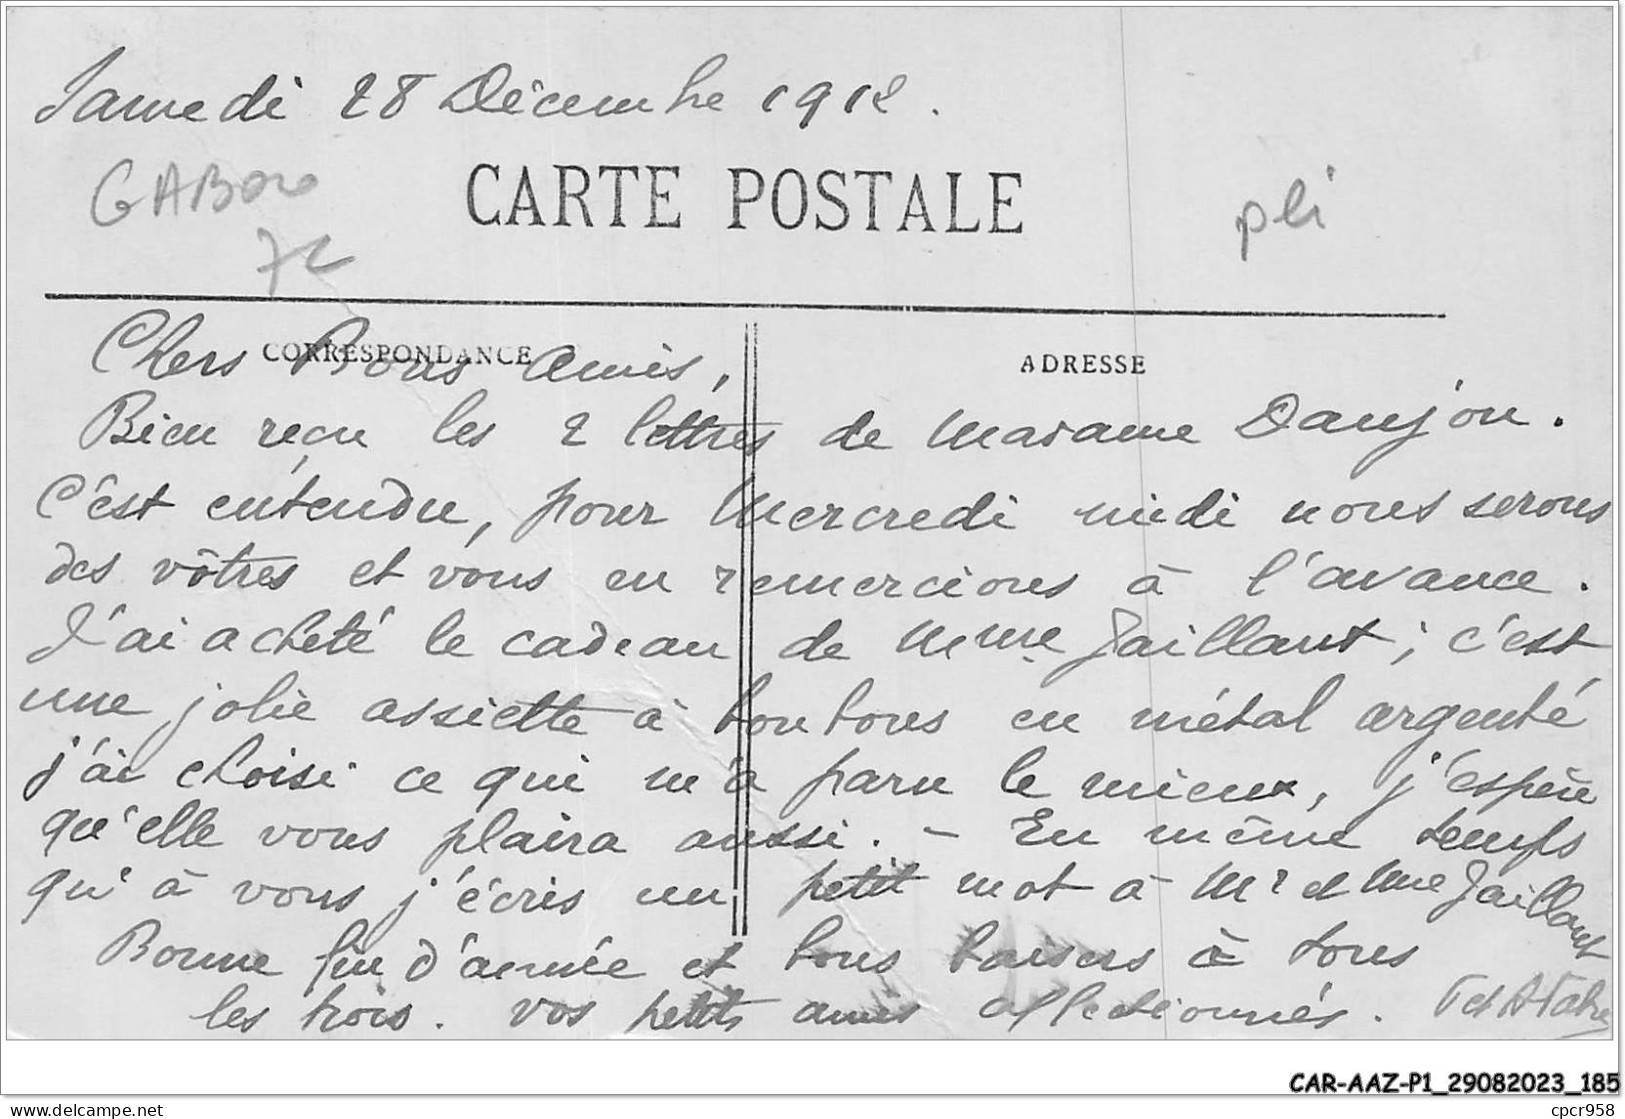 Samedi 28 Décembre 1912.
GABON
CARTE POSTALE
pli
72
CORRESPONDANCE
ADRESSE
Chers Bons Amis,
Bien reçu les 2 lettres de Madame Danjou.
C'est entendu, pour Mercredi midi nous serons
des vôtres et vous en remercions à l'avance.
J'ai acheté le cadeau de Mme Jaillant; c'est
une jolie assiette à bonbons en métal argenté
j'ai choisi ce qui m'a paru le mieux, j'espère
qu'elle vous plaira aussi. - En même temps
qu'à vous j'écris un petit mot à Mr et Mme Jaillant
Bonne fin d'année et bons baisers à tous
les trois. Vos petits amis affectionnés.
CAR-AAZ-P1_29082023_185
delcampe.net
cpcr958